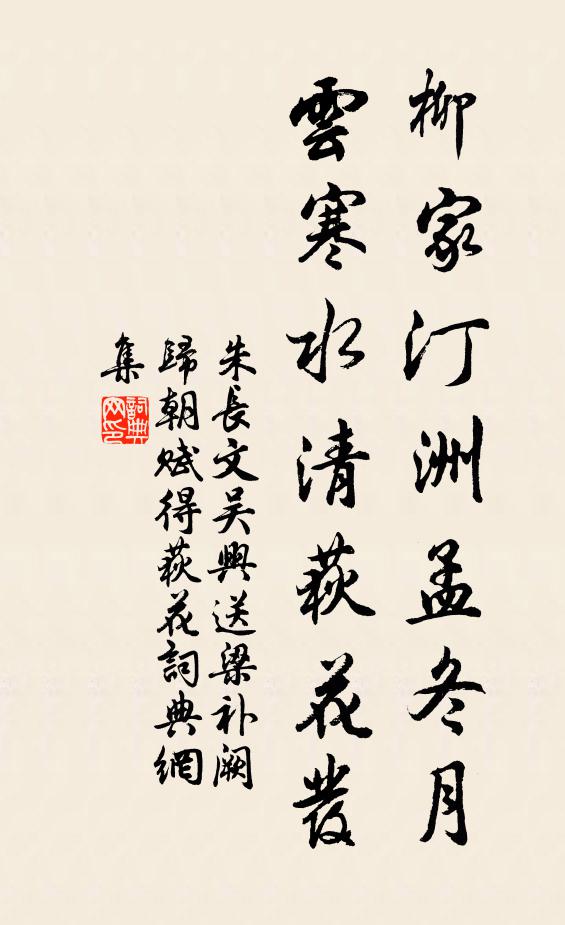 柳家汀洲孟冬月
雲寒水清荻花發
朱長文吳興送梁补阙
歸朝賦得荻花詞典網
集
詞典
网印